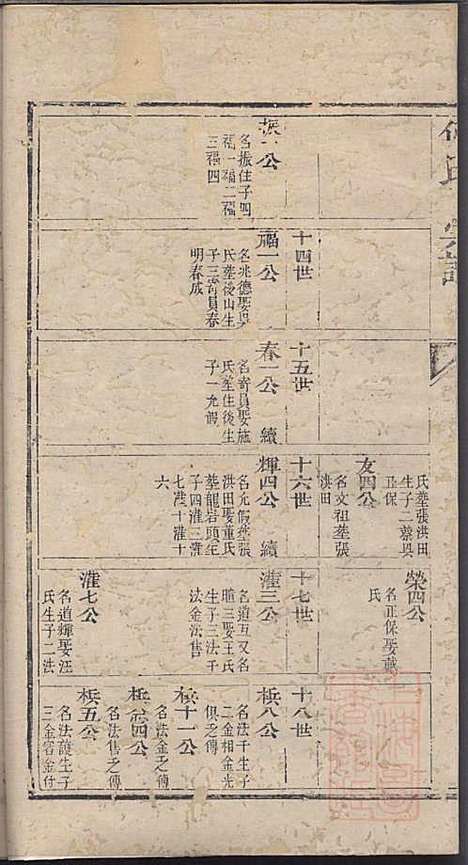 氏葬張洪田
生子二蔡與
正保
友四公
名文祖葬張
洪田
榮四公
名正保娶戴
氏
名振住子四
福一福二福
三福四
十四世
福一公
名兆德娶吳
氏葬後山生
子三寄員春
明春成
十五世
春一公 續
名寄員娶施
氏葬住後生
子一允假
十六世
輝四公 續
名允假葬張
洪田娶董氏
葬龍岩頭生
子四灌三灌
七灌十灌十
六
十七世
灌三公
名道互又名
三娶王氏
生子三法千
法金法售
灌七公
名道輝娶汪
氏生子二法
十八世
八公
名法千生子
二金相金光
俱乏傳
十一公
名法金乏傳
四公
名法售乏傳
五公
名法護生子
三金容金付